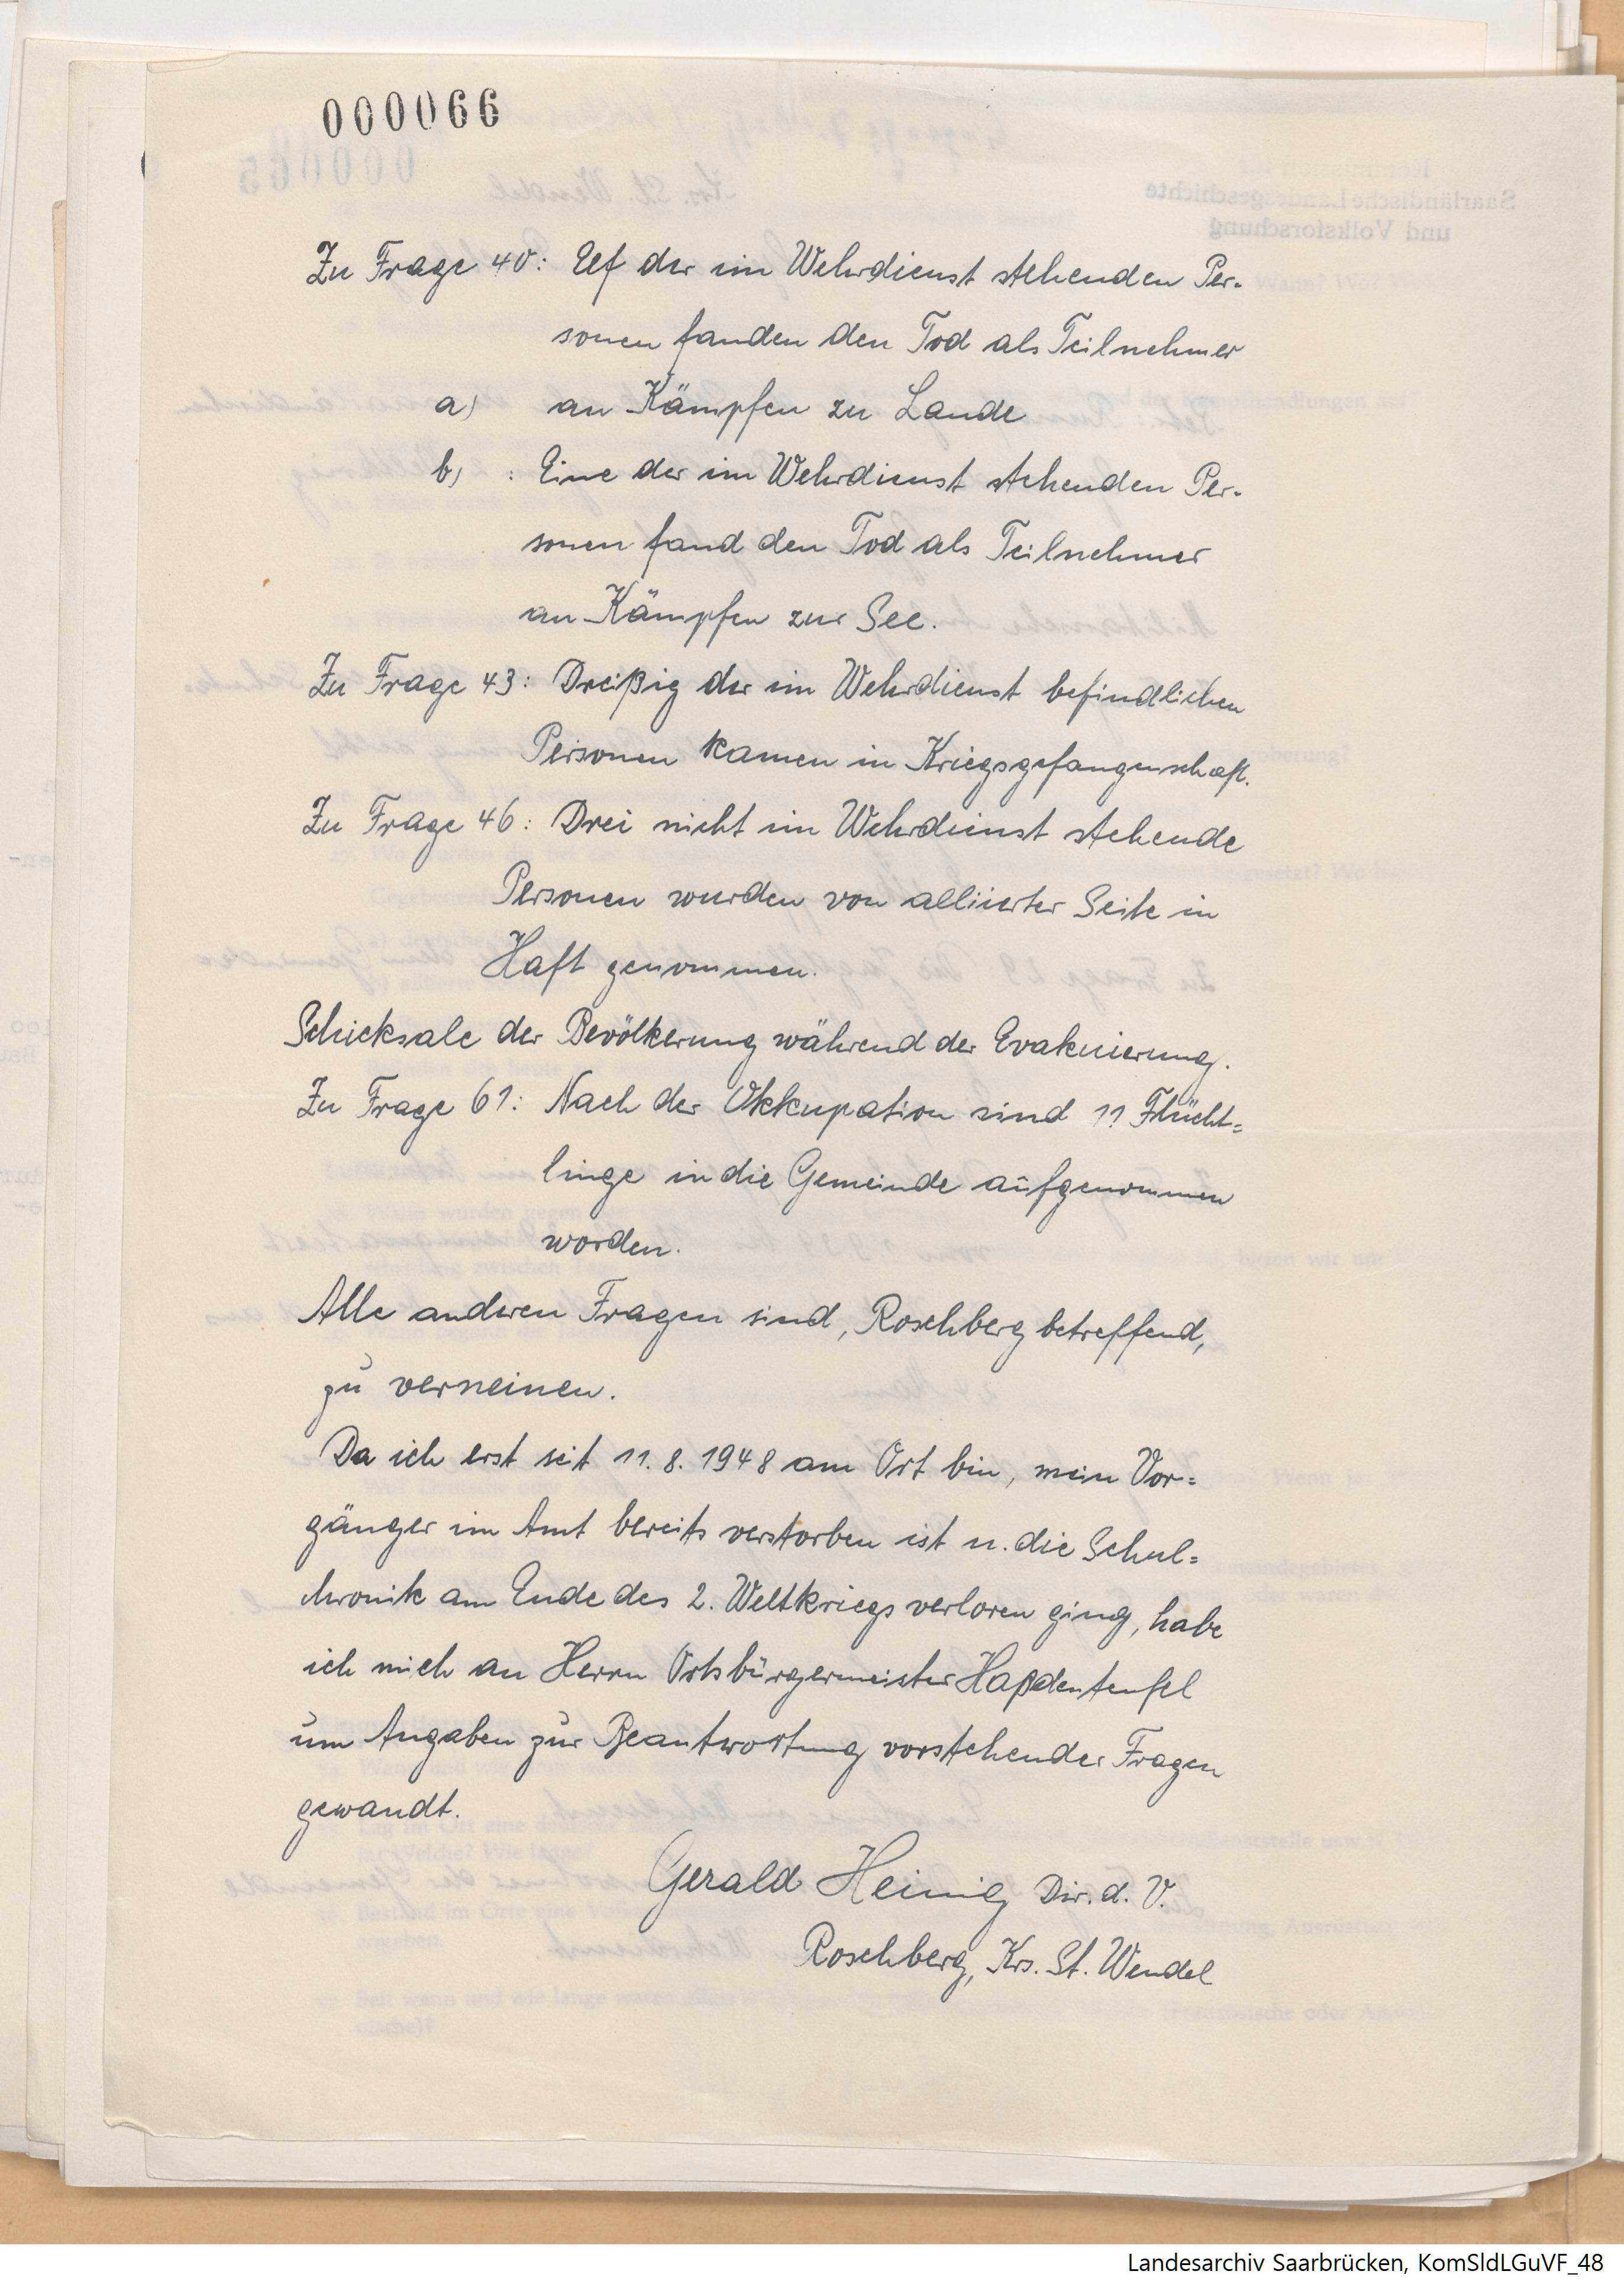 000066
Zu Frage 40: Elf der im Wehrdienst stehenden Per-
sonen fanden den Tod als Teilnehmer
a) an Kämpfen zu Lande
b) : Eine der im Wehrdienst stehenden Per-
sonen fand den Tod als Teilnehmer
an Kämpfen zur See.
Zu Frage 43: Dreißig der im Wehrdienst befindlichen
Personen kamen in Kriegsgefangenschaft.
Zu Frage 46: Drei nicht im Wehrdienst stehende
Personen wurden von alliierter Seite in
Haft genommen.
Schicksale der Bevölkerung während der Evakuierung.
Zu Frage 61: Nach der Okkupation sind 11 Flücht=
linge in die Gemeinde aufgenommen
worden.
Alle anderen Fragen sind, Roschberg betreffend,
zu verneinen.
Da ich erst seit 11.8.1948 am Ort bin, mein Vor=
gänger im Amt bereits verstorben ist u. die Schul=
chronik am Ende des 2. Weltkriegs verloren ging, habe
ich mich an Herrn Ortsbürgermeister Haßdenteufel
um Angaben zur Beantwortung vorstehender Fragen
gewandt.
Gerald Heinig Dir. d. V.
Roschberg, Krs. St. Wendel
Landesarchiv Saarbrücken, KomSldLGuVF_48